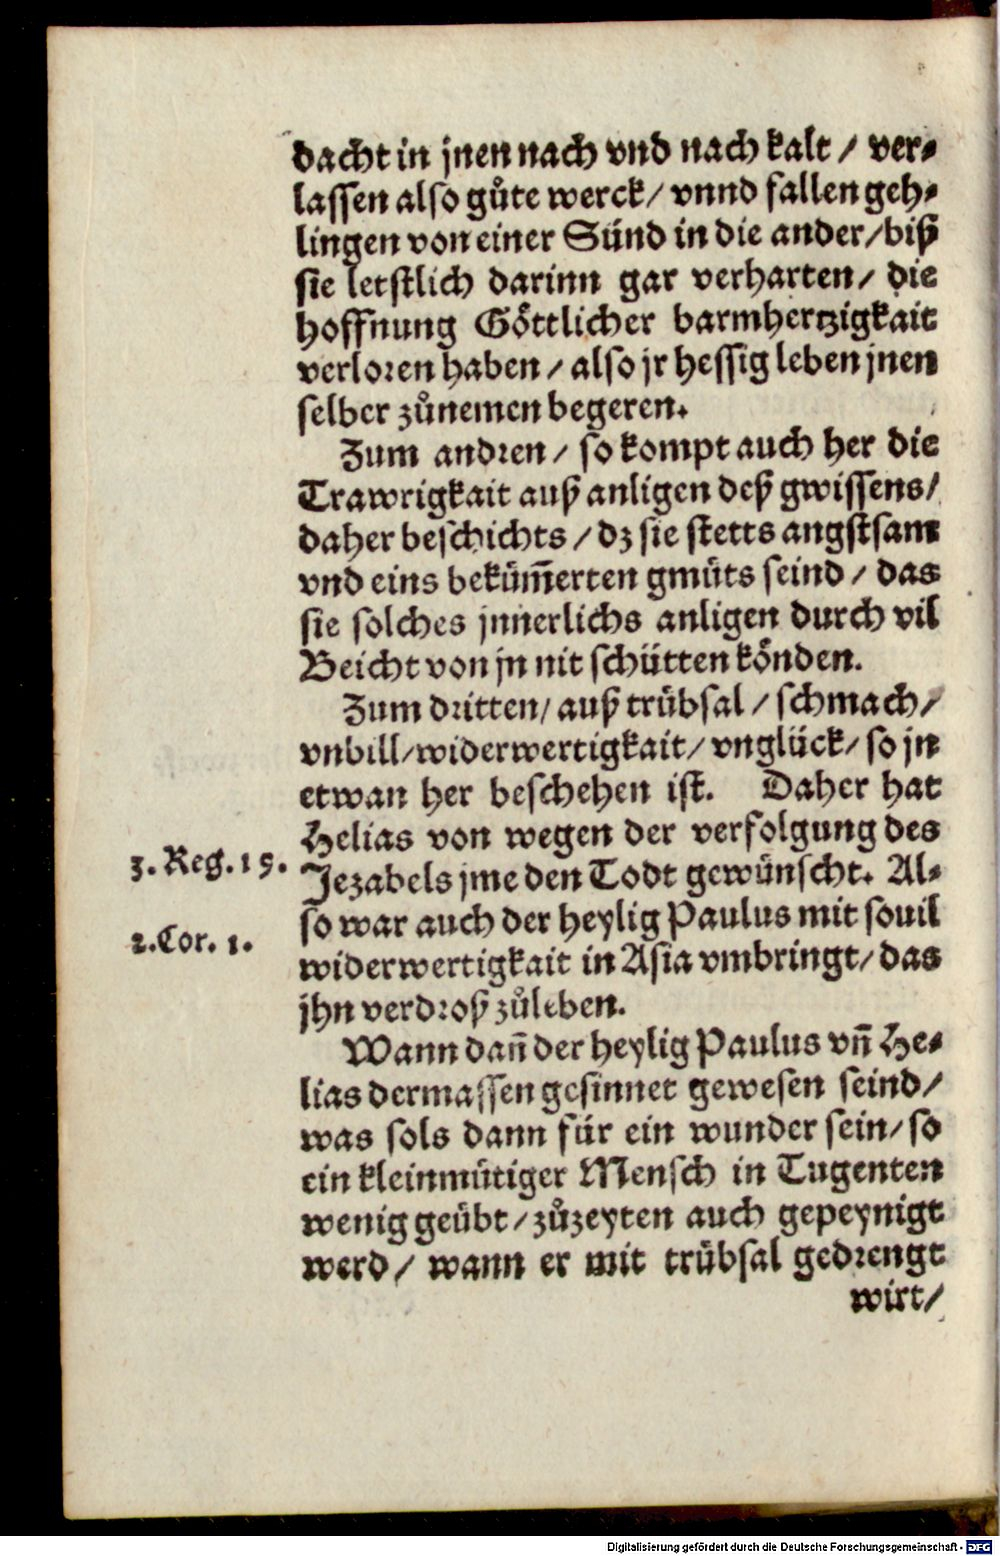 dacht in jnen nach vnd nach kalt / ver⸗
lassen also gůte werck / vnnd fallen geh⸗
lingen von einer Sünd in die ander / biß
sie letstlich darinn gar verharten / die
hoffnung Göttlicher barmhertzigkait
verloren haben / also jr hessig leben jnen
selber zůnemen begeren.
Zum andren / so kompt auch her die
Trawrigkait auß anligen deß gwissens /
daher beschichts / dz sie stetts angstsam
vnd eins beküm̄erten gmüts seind / das
sie solches jnnerlichs anligen durch vil
Beicht von jn nit schütten könden.
Zum dritten / auß trübsal / schmach /
vnbill / widerwertigkait / vnglück / so jn
etwan her beschehen ist. Daher hat
Helias von wegen der verfolgung des
3. Reg. 19.
Jezabels jme den Todt gewünscht. Al⸗
so war auch der heylig Paulus mit souil
2. Cor. 1.
widerwertigkait in Asia vmbringt / das
jhn verdroß zůleben.
Wann dañ der heylig Paulus vñ He⸗
lias dermassen gesinnet gewesen seind /
was sols dann für ein wunder sein / so
ein kleinmütiger Mensch in Tugenten
wenig geübt / zůzeyten auch gepeynigt
werd / wann er mit trübsal gedrengt
wirt /
Digitalisierung gefördert durch die Deutsche Forschungsgemeinschaft - DFG